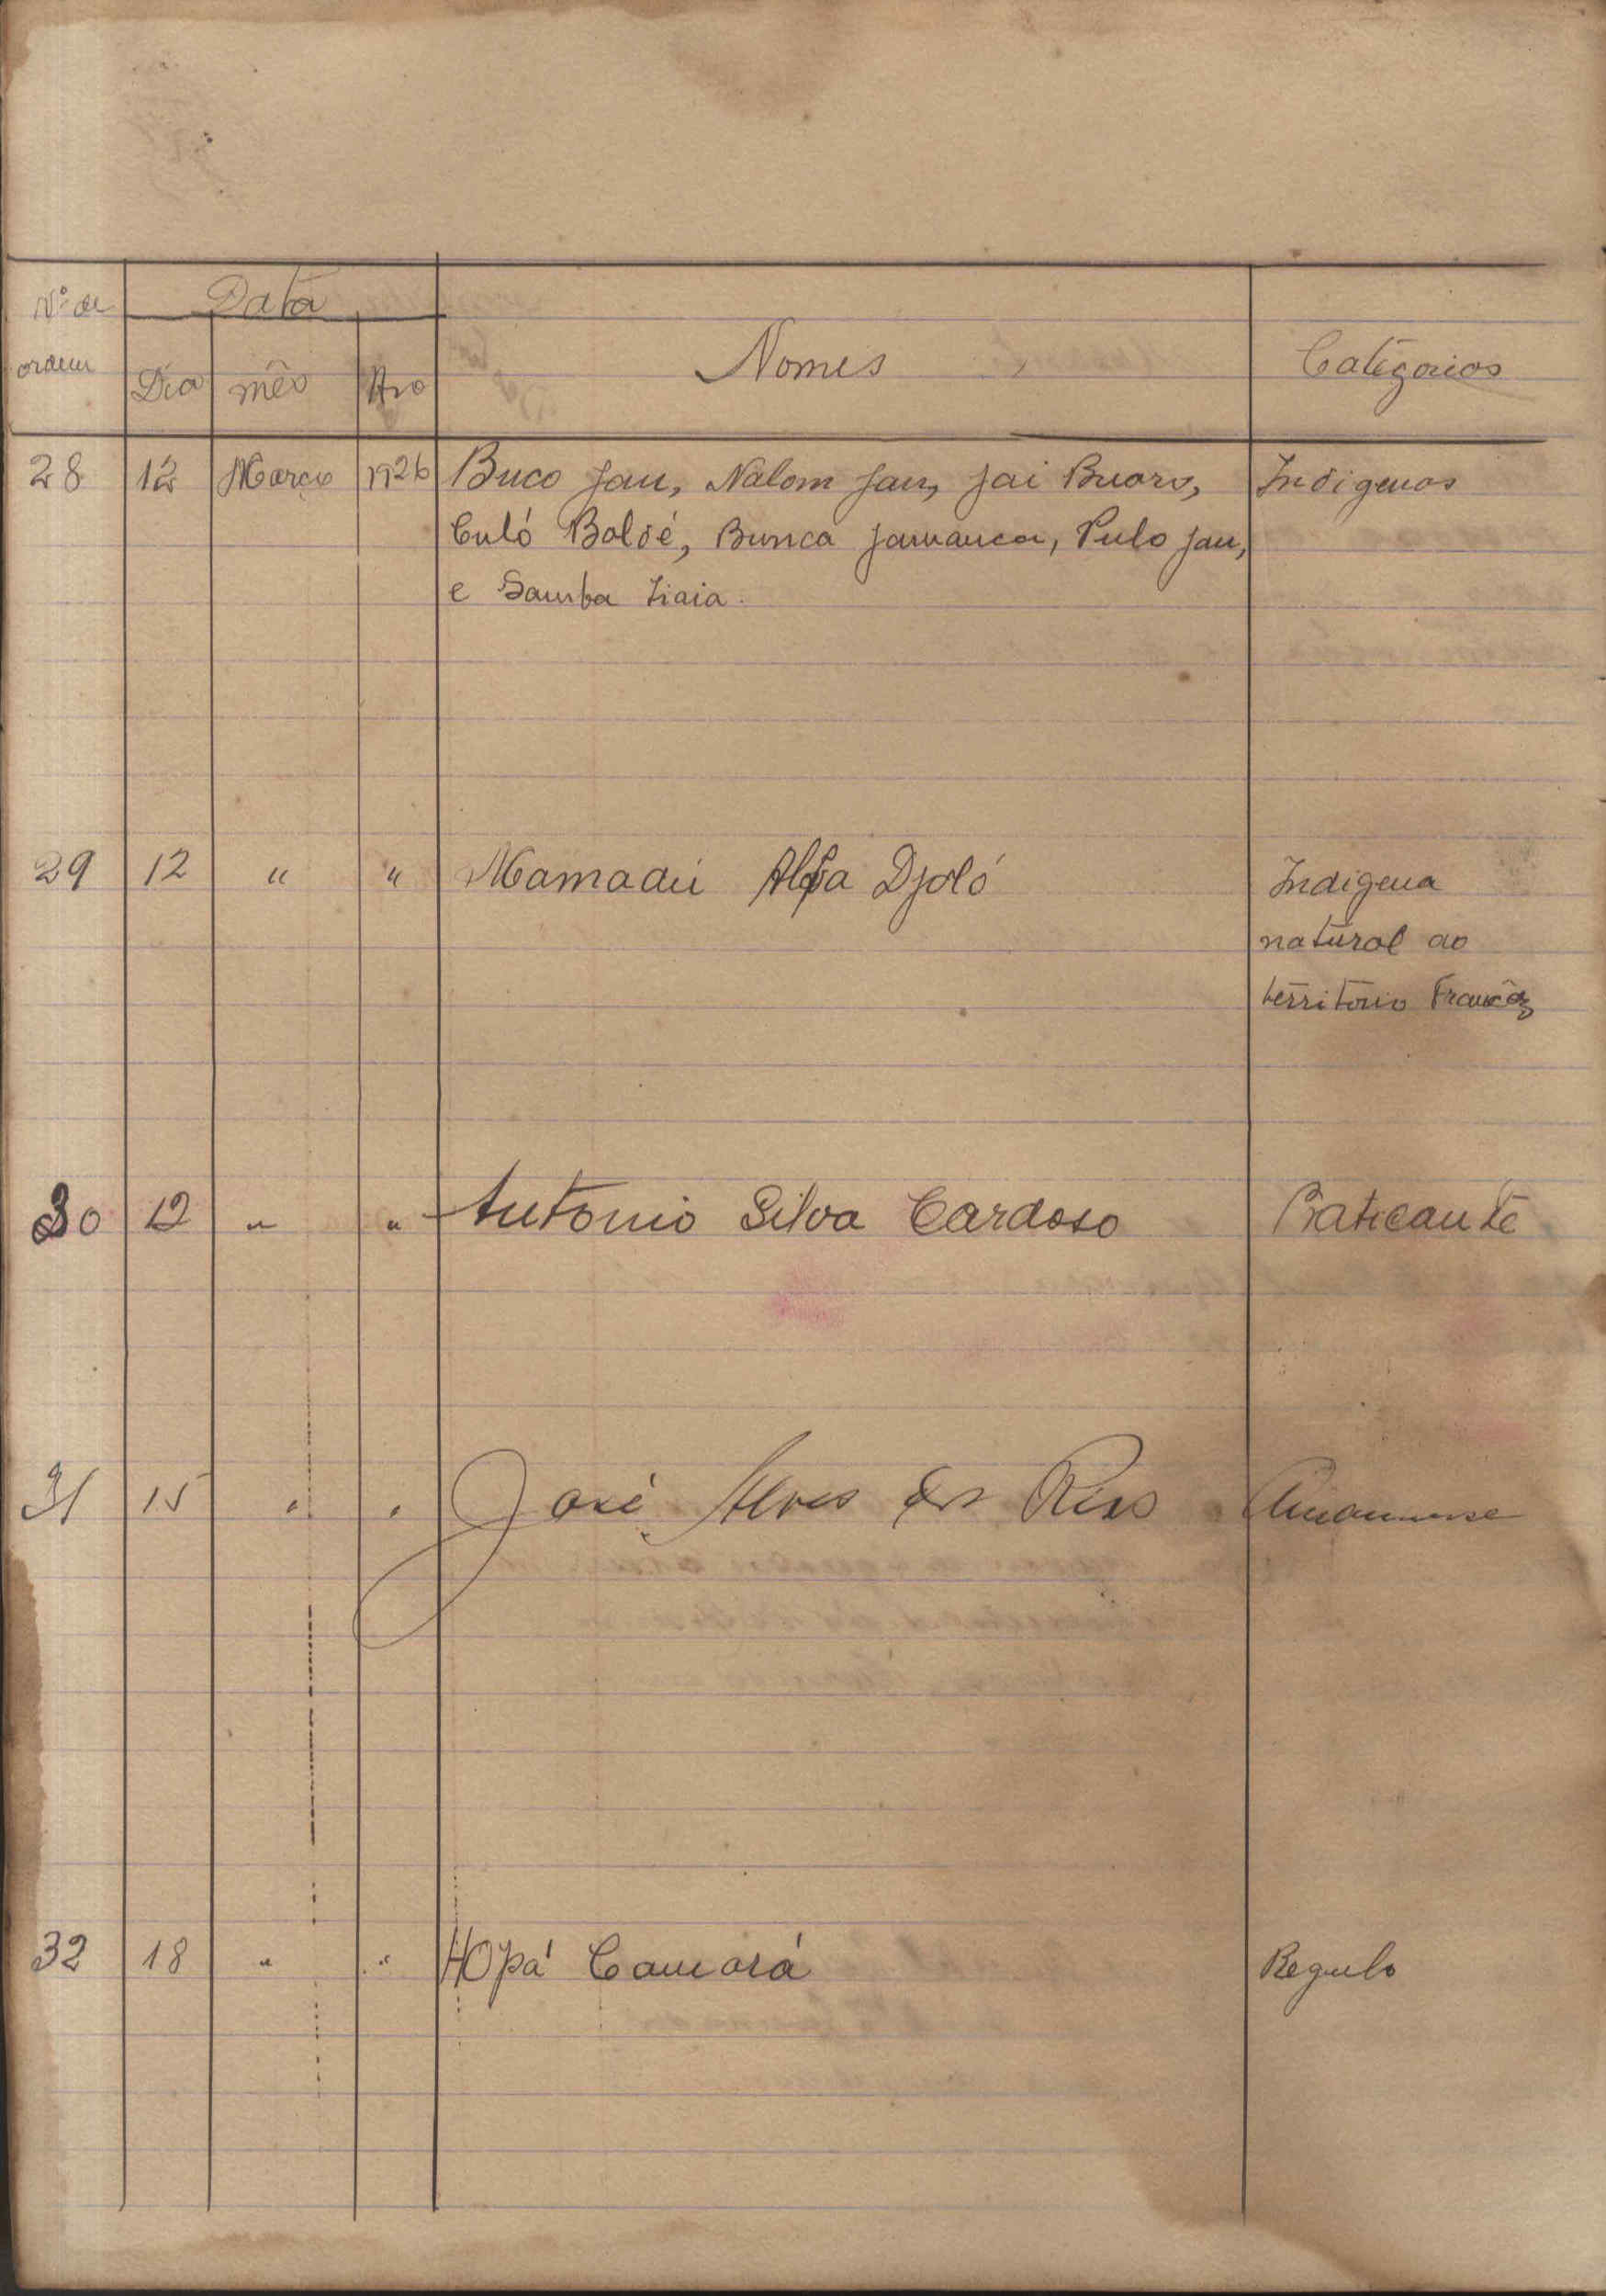 Nº de Data
ordem Dia mês Ano Nomes Categorias
28 12 Março 1926 Buco Jau, Nalom Jau, Jai Buaro, Indigenas
Culó Baldé, Bunca Jamanca, Pulo Jau,
e Samba Liaia.
29 12 " " Mamadú Alfa Djoló Indigena
natural do
território Francês
30 12 " " Antonio Silva Cardoso Praticante
31 15 " " José Alves dos Reis Amanuense
32 18 " " HOpá Camará Regulo